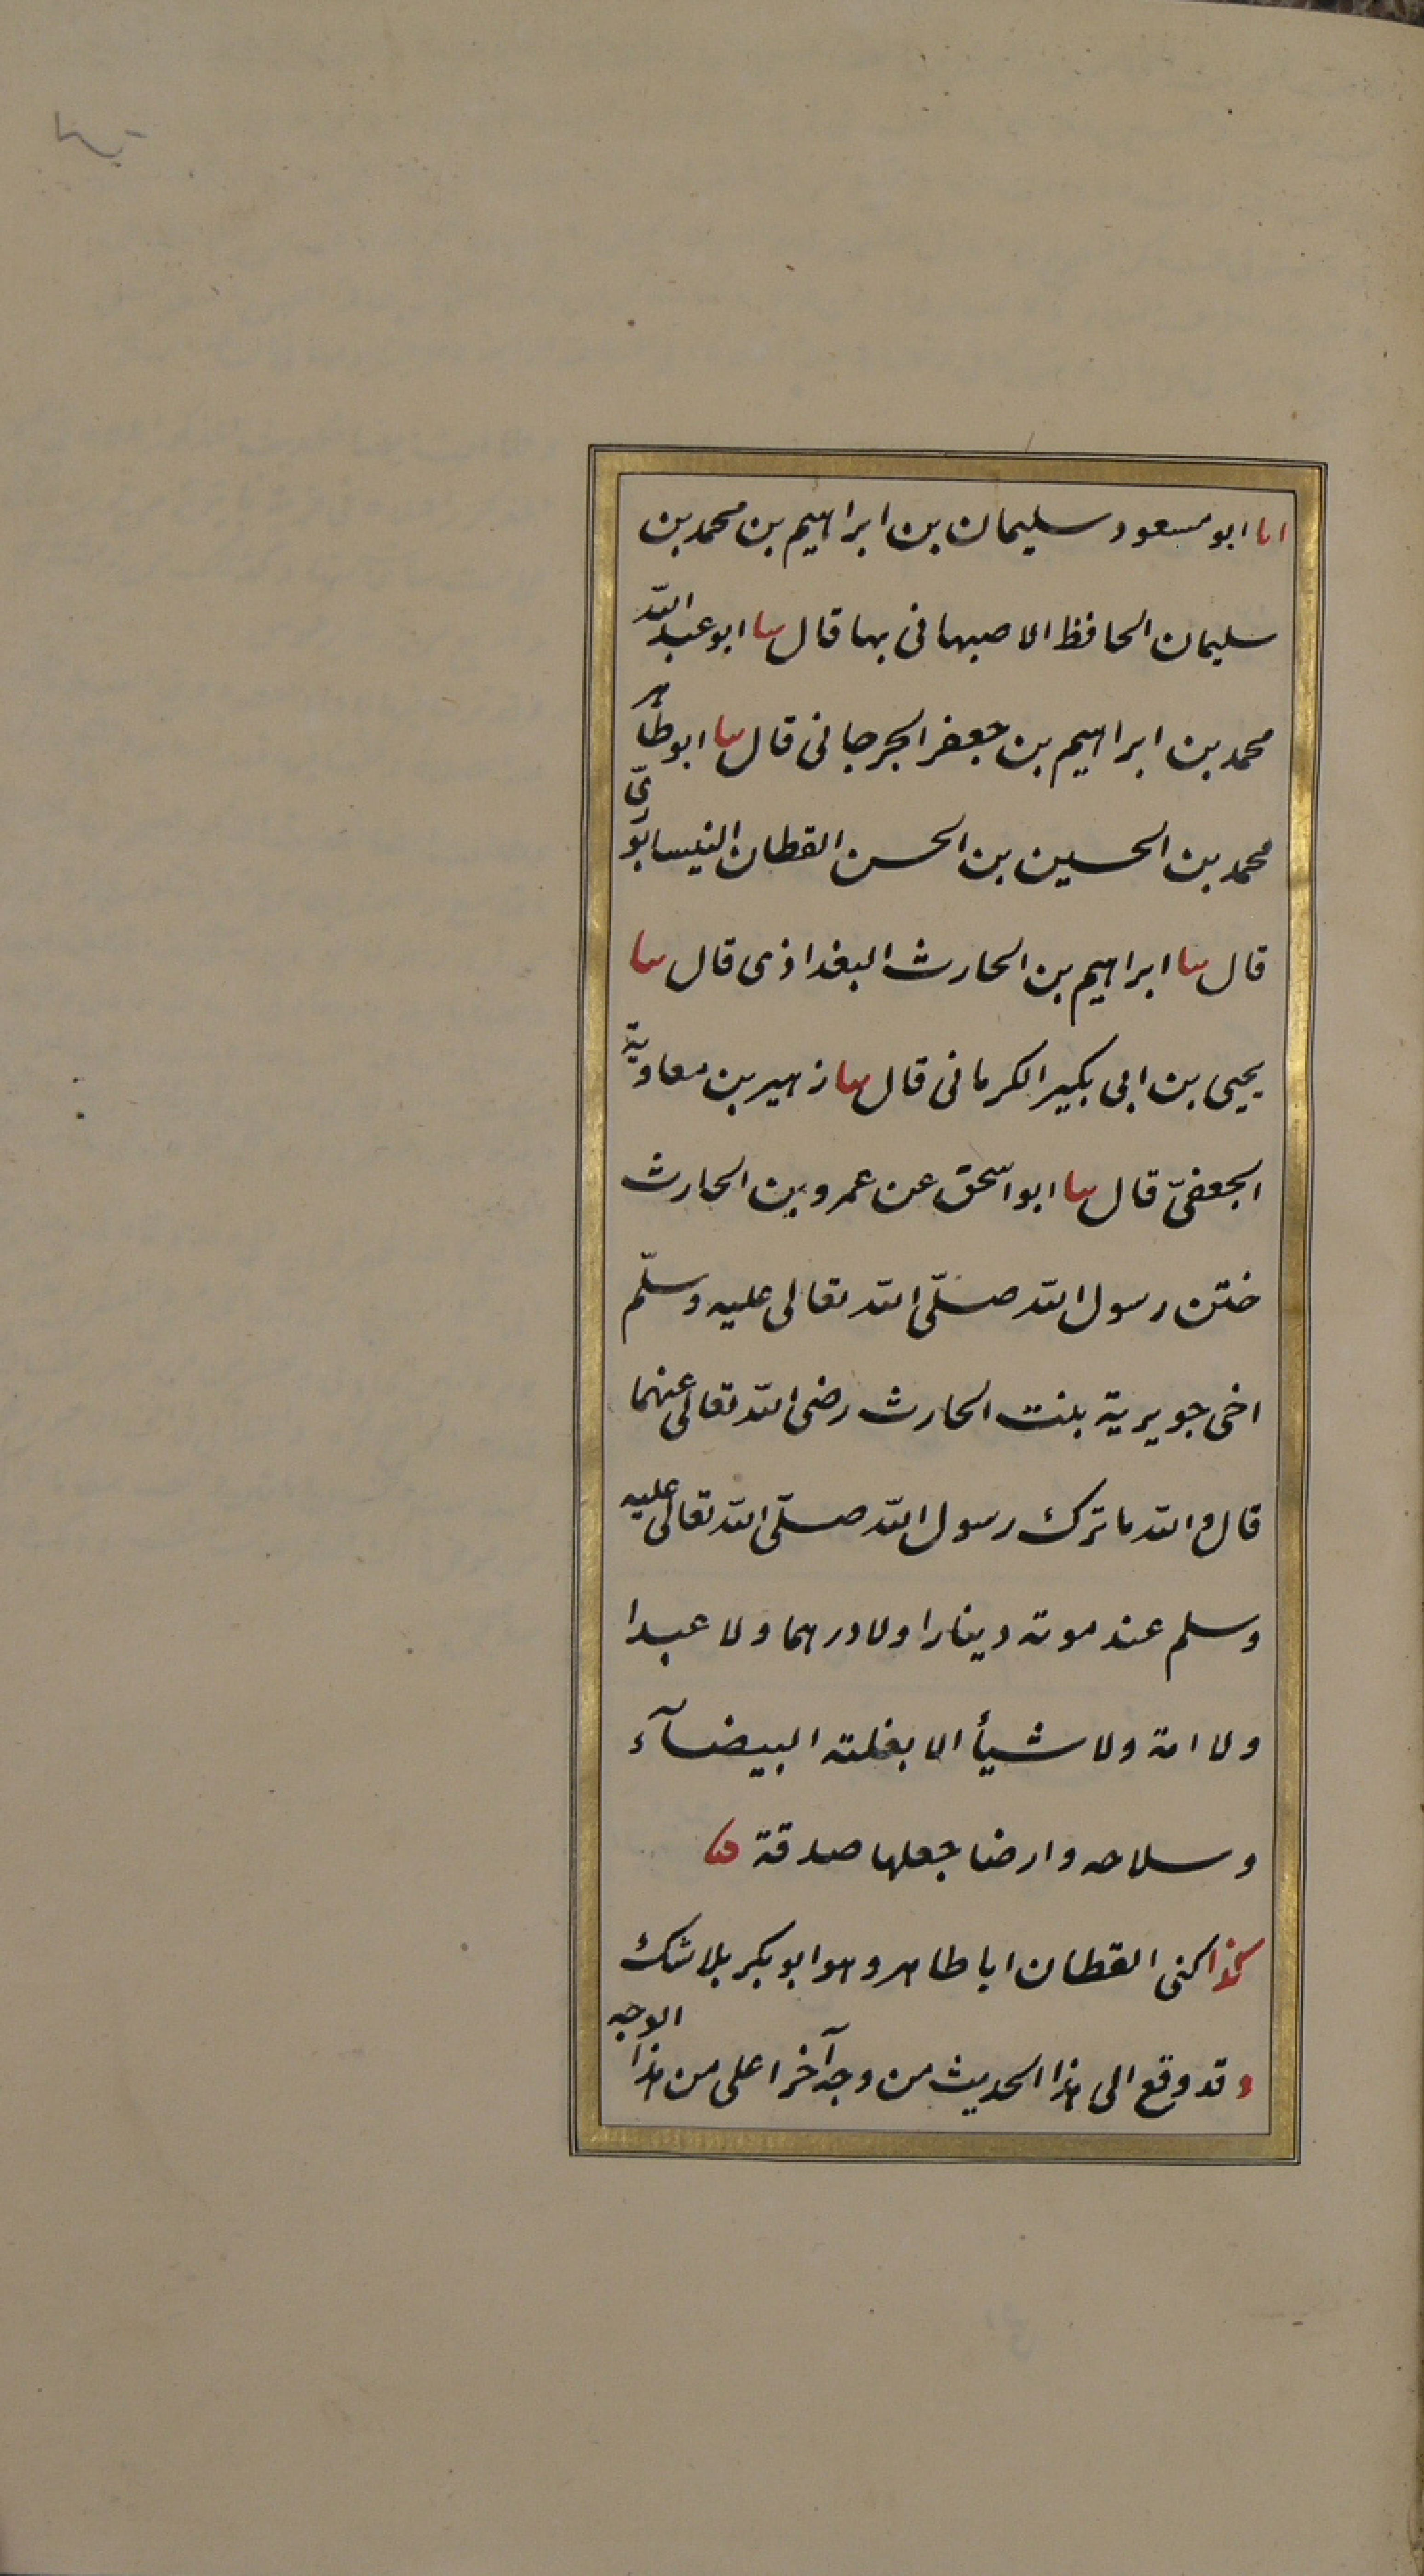 انا ابو مسعود سليمان بن ابراهيم بن محمد بن
سليمان الحافظ الاصبهانى بها قال سا ابو عبد الله
محمد بن ابراهيم بن جعفر الجرجانى قال سا ابو طاهر
محمد بن الحسين بن الحسن القطان النيسابورىّ
قال سا ابراهيم بن الحارث البغداذى قال سا
يحيى بن ابى بكير الكرمانى قال سا زهير بن معاوية
الجعفىّ قال سا ابو اسحق عن عمرو بن الحارث
ختن رسول الله صلّى الله تعالى عليه وسلّم
اخى جويرية بنت الحارث رضى الله تعالى عنهما
قال والله ما ترك رسول الله صلّى الله تعالى عليه
وسلم عند موته دينارا ولا درهما ولا عبدا
ولا امة ولا شيأ الا بغلته البيضآء
وسلاحه وارضا جعلها صدقة
كذا كنى القطان ابا طاهر وهو ابو بكر بلا شك
وقد وقع الى هذا الحديث من وجه آخر اعلى من هذا الوجه